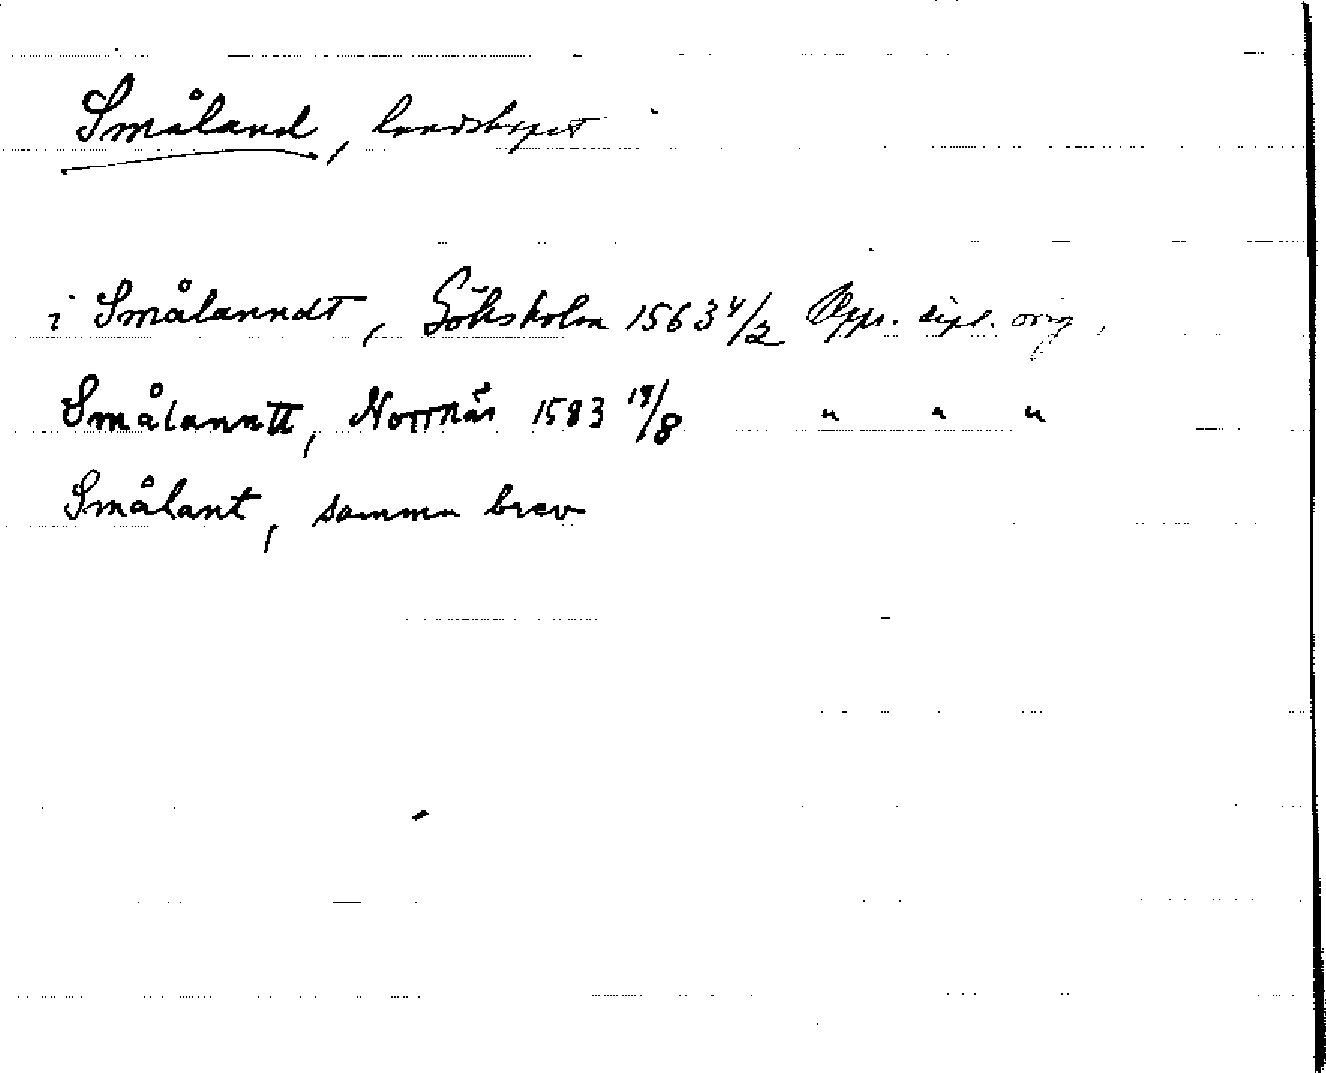 Småland, landskapet
i Smålanndt, Göksholm 1563 4/2 Upps. dipl. orig.
Smålanntt, Norrnäs 1583 18/8 " " "
Smålant, samma brev